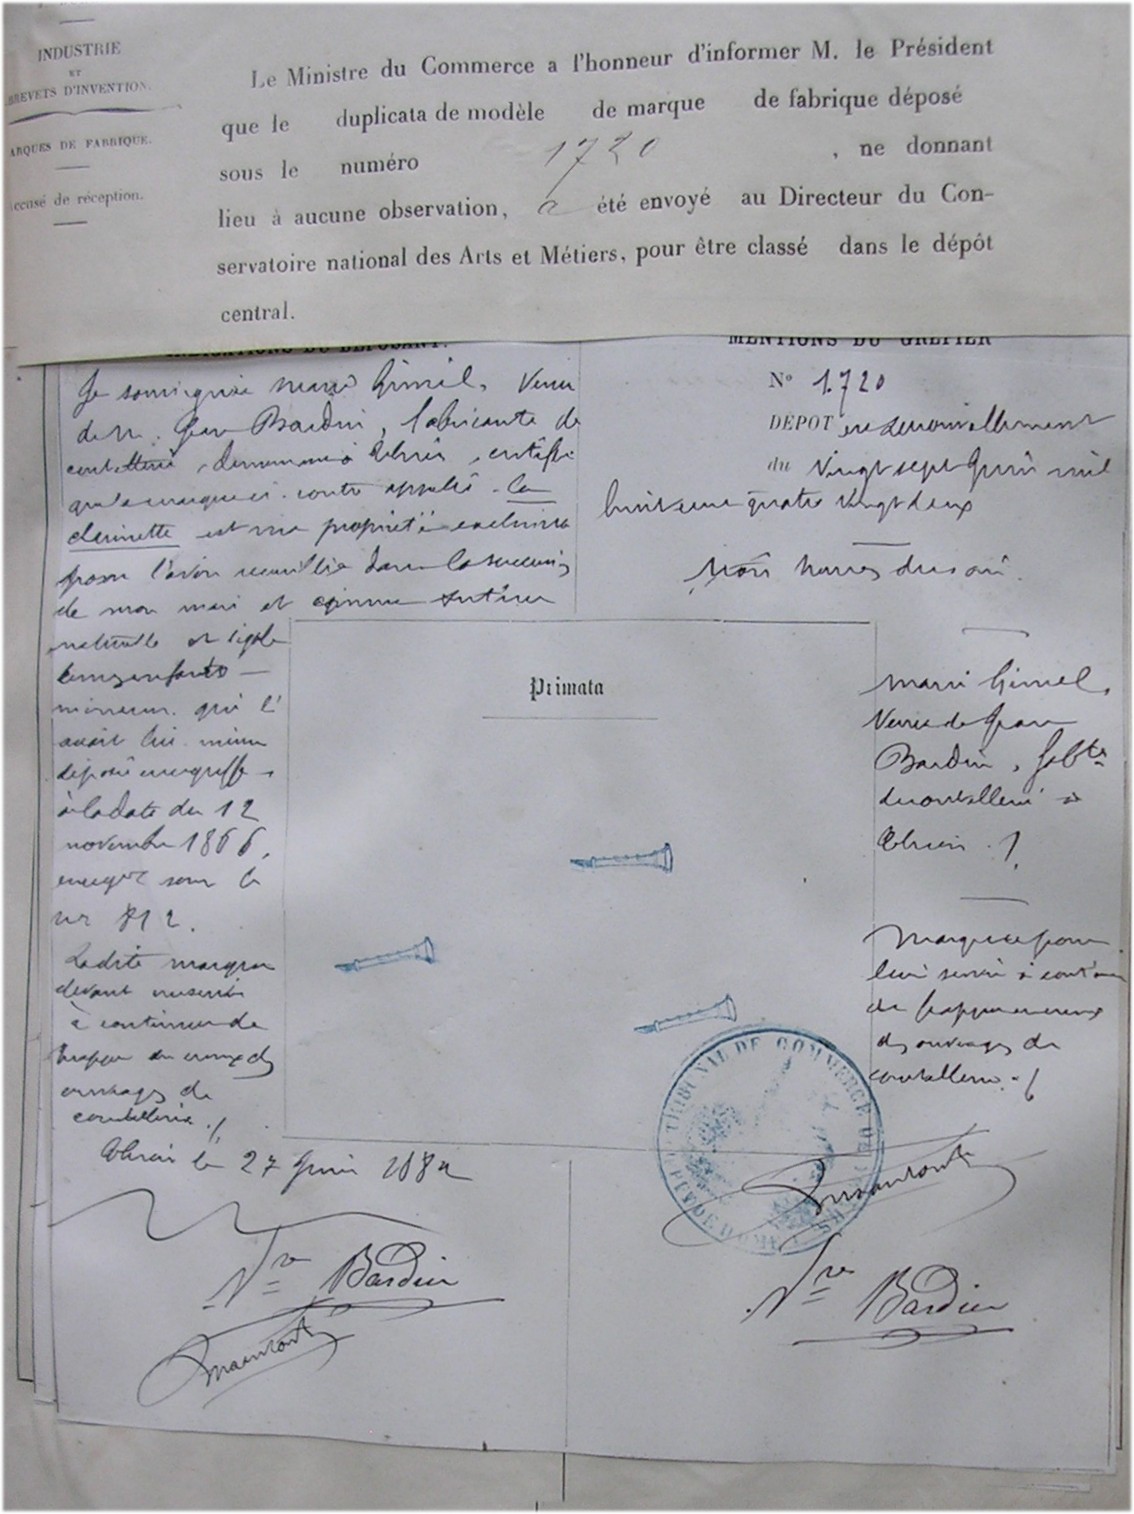 INDUSTRIE
ET
BREVETS D'INVENTION.
ARQUES DE FABRIQUE.
ccusé de réception.
Le Ministre du Commerce a l'honneur d'informer M. le Président
que le duplicata de modèle de marque de fabrique déposé
sous le numéro 1720 , ne donnant
lieu à aucune observation, a été envoyé au Directeur du Con-
servatoire national des Arts et Métiers, pour être classé dans le dépôt
central.
INDICATIONS DU DÉPOSANT.
Je soussignée Marie Gimel, Veuve
de M. Jean Bardin, fabricante de
coutellerie, demeurant à Thiers, certifie
que la marque ci-contre appelée la
clarinette est ma propriété exclusive
pour l'avoir recueillie dans la succession
de mon mari et comme tutrice
naturelle et légale
de mes enfants
mineurs qui l'
avait lui-même
déposée au greffe
à la date du 12
novembre 1866,
sous le
no 812.
Ladite marque
devant
à continuer de
frapper en creux des
ouvrages de
coutellerie ./.
Thiers le 27 Juin 1882
Vve Bardin
MENTIONS DU GREFFIER
No 1.720
DÉPOT en renouvellement
du Vingt sept Juin mil
huit cent quatre vingt deux
heures du soir.
Marie Gimel,
Veuve de Jean
Bardin, fabte
de coutellerie à
Thiers ./.
Marque pour
lui servir à continuer
de frapper en creux
des ouvrages de
coutellerie ./.
Primata
TRIBUNAL DE COMMERCE DE
PUY DE DOME
Vve Bardin